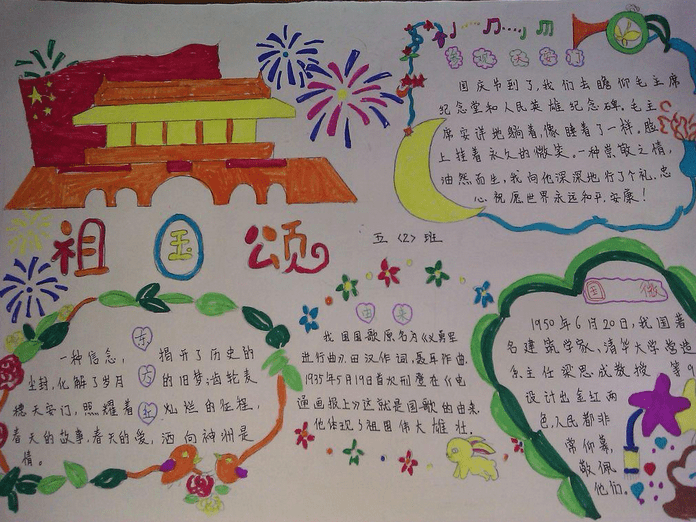 祖国颂
五〈2〉班
参观天安门
国庆节到了,我们去瞻仰毛主席
纪念堂和人民英雄纪念碑。毛主
席安详地躺着,像睡着了一样。脸
上挂着永久的微笑。一种崇敬之情,
油然而生,我向他深深地行了个礼,忠
心祝愿世界永远和平,安康!
东方红
一种信念, 揭开了历史的
尘封,化解了岁月 的旧梦;齿轮麦
穗天安门,照耀着 灿烂的征程,
春天的故事,春天的爱,洒向神州是
情。
国歌
我国国歌原名为《义勇军
进行曲》,田汉作词,聂耳作曲,
1935年5月19日首次刊度在《电
通画报上》,这就是国歌的由来,
他体现了祖国伟大雄壮。
国 徽
1950年6月20日,我国著
名建筑学家、清华大学营造
系主任梁思成教授 第9
设计出金红两
色,人民都非
常仰慕,
敬佩
他们。